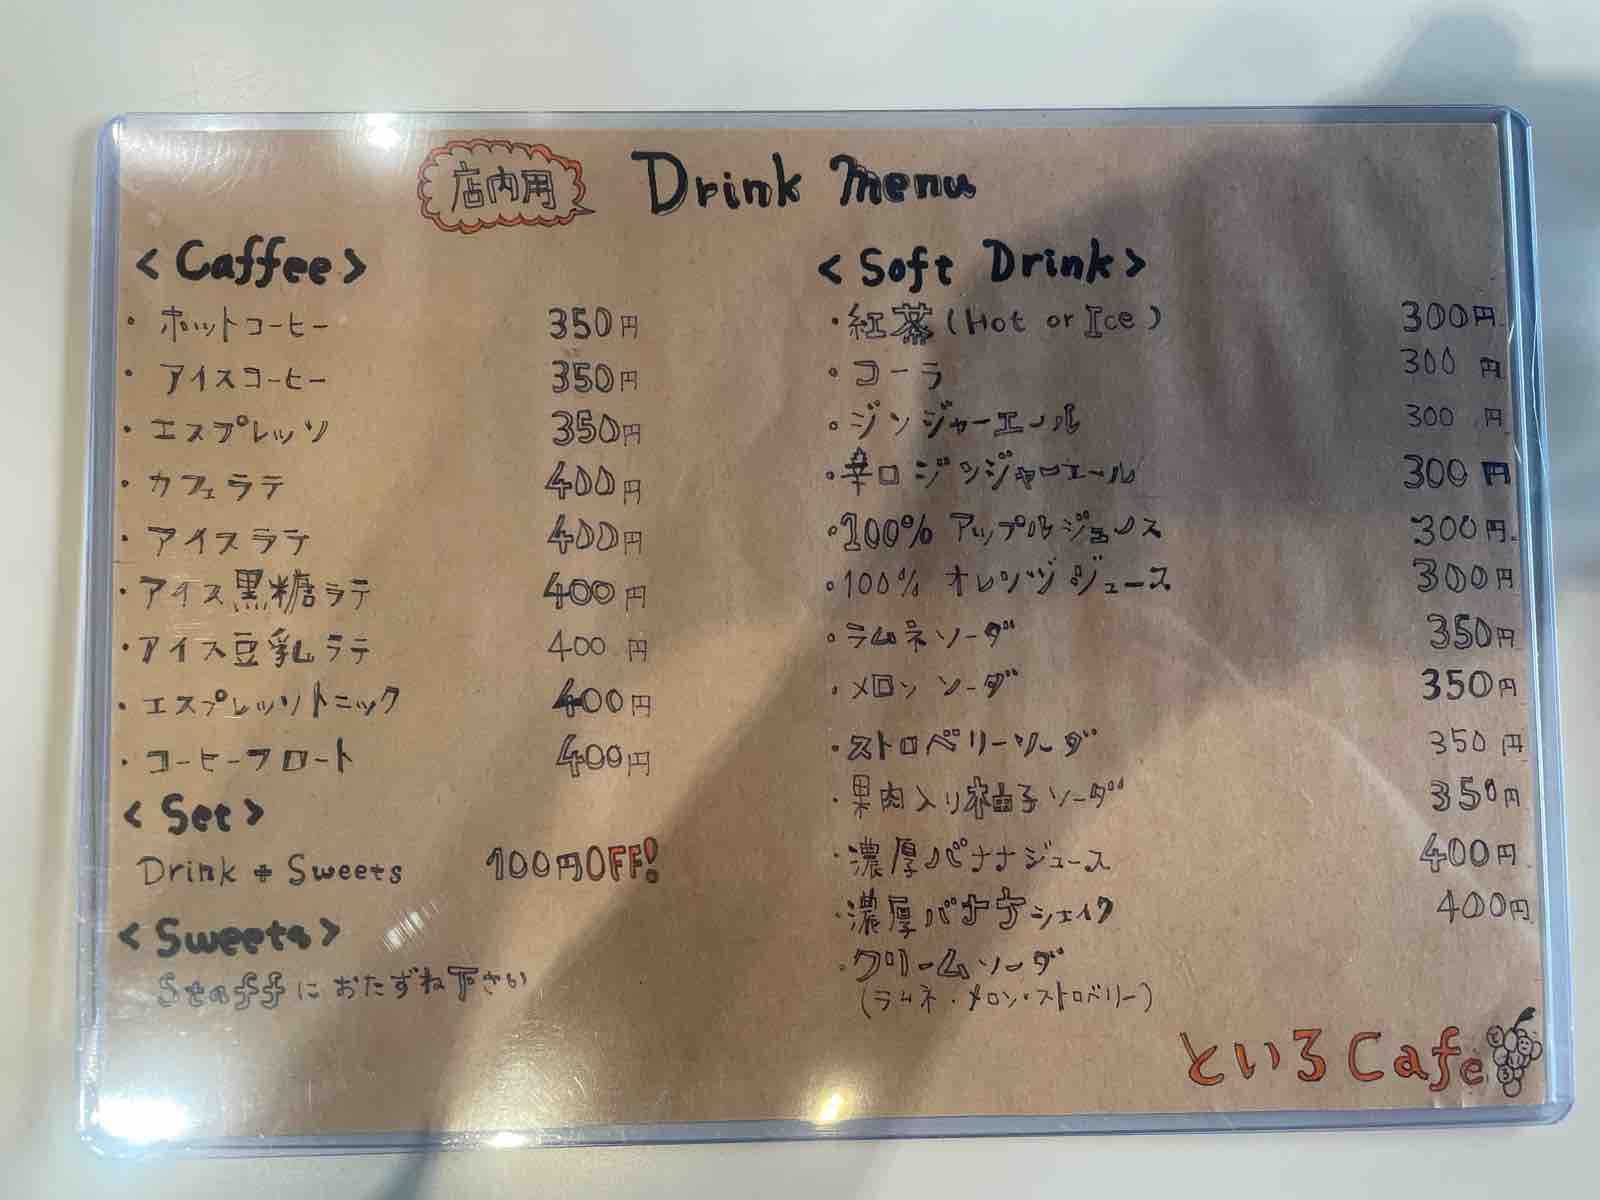 店内用 Drink menu
<Caffee>
・ホットコーヒー 350円
・アイスコーヒー 350円
・エスプレッソ 350円
・カフェラテ 400円
・アイスラテ 400円
・アイス黒糖ラテ 400円
・アイス豆乳ラテ 400円
・エスプレッソトニック 400円
・コーヒーフロート 400円
<Set>
Drink + Sweets 100円OFF!
<Sweets>
Staffにおたずね下さい
<Soft Drink>
・紅茶(Hot or Ice) 300円
・コーラ 300円
・ジンジャーエール 300円
・辛口ジンジャーエール 300円
・100% アップルジュース 300円
・100% オレンジジュース 300円
・ラムネソーダ 350円
・メロンソーダ 350円
・ストロベリーソーダ 350円
・果肉入り柚子ソーダ 350円
・濃厚バナナジュース 400円
・濃厚バナナシェイク 400円
・クリームソーダ
(ラムネ・メロン・ストロベリー)
といろCafe